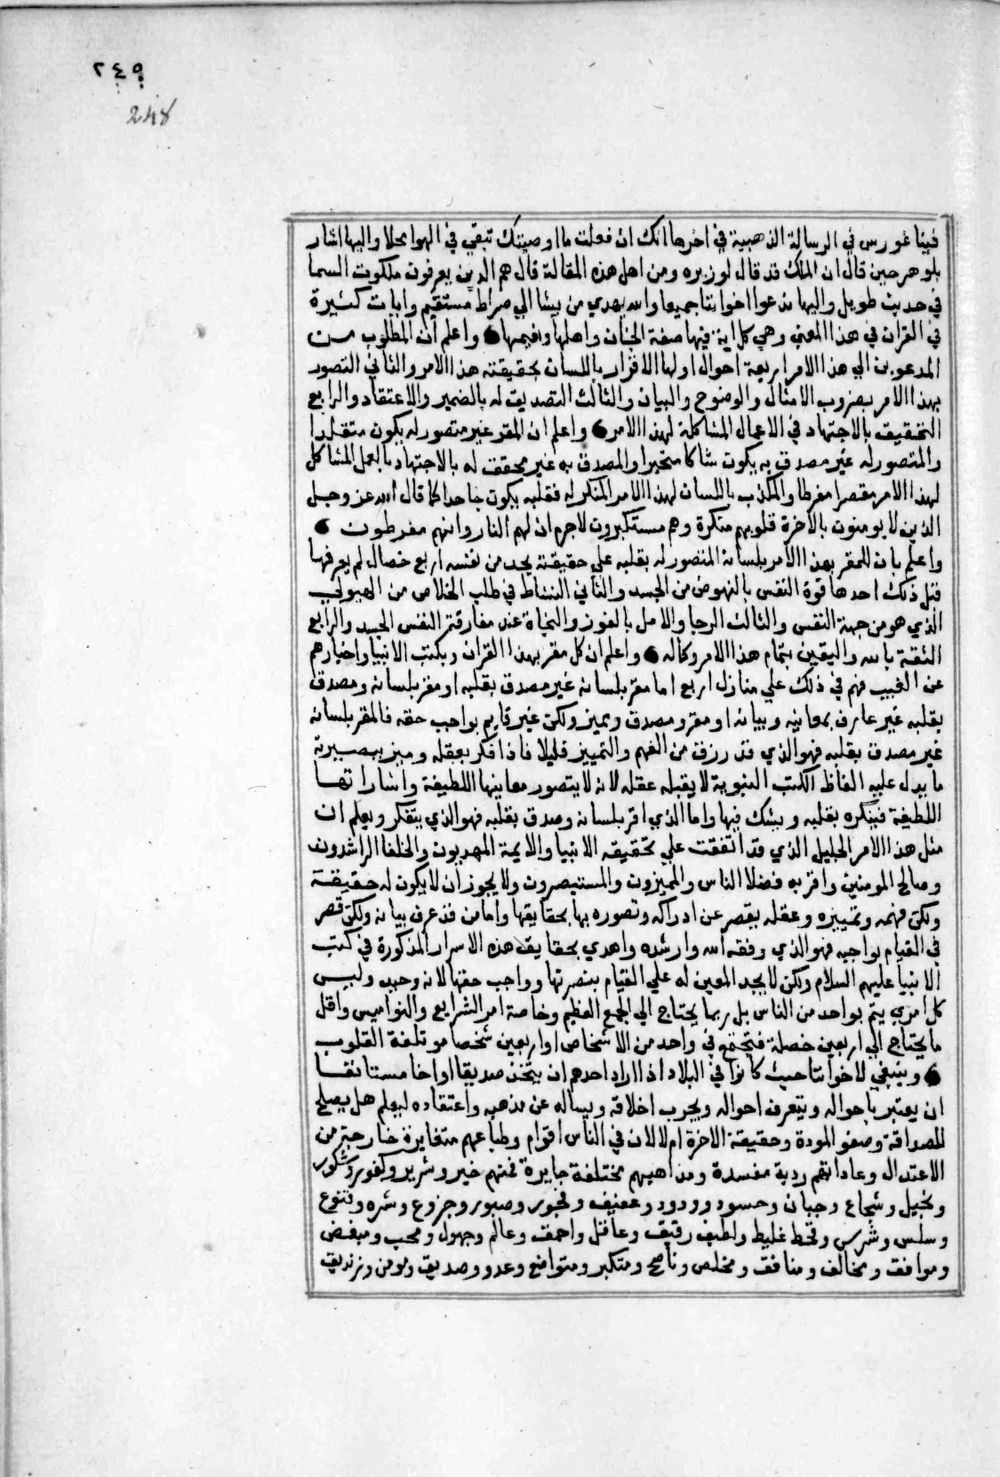 ٢٤٩
248
فيثاغورس في الرسالة الذهبية في اخرها انك ان فعلت ما اوصيتك تبقي في الهوا مخلا واليها اشار
بلوهر حين قال ان الملك قد قال لوزيره ومن اهل هذه المقالة قال هم الذين يعرفون ملكوت السما
في حديث طويل واليها ندعوا اخواننا جميعا والله يهدي من يشا الي صراط مستقيم وايات كثيرة
في القران في هذا المعني وهي كل اية فيها صفة الجنان واهلها ونعيمها واعلم ان المطلوب من
المدعوين الي هذا الامر اربعة احوال اولها الاقرار باللسان بحقيقته هذا الامر والثاني التصور
بهذا الامر بضروب الامثال والوضوح والبيان والثالث التصديق له بالضمير والاعتقاد والرابع
التحقيق بالاجتهاد في الاعمال المشاكلة لهذا الامر واعلم ان المقر غير متصور له يكون متقلدا
والمتصور له غير مصدق به يكون شاكا متحيرا والمصدق به غير محقق له بالاجتهاد بالعمل المشاكل
لهذا الامر مقصرا مفرطا والمكذب باللسان لهذا الامر المنكر له فقلبه يكون جاحدا كما قال الله عز وجل
الذين لا يومنون بالاخرة قلوبهم منكرة وهم مستكبرون لاجرم ان لهم النار وانهم مفرطون
واعلم بان للمقر بهذا الامر بلسانه المتصور له بقلبه علي حقيقته يجد من نفسه اربع خصال لم يعرفها
قبل ذلك احدها قوة النفس بالنهوض من الجسد والثاني النشاط في طلب الخلاص من الهيولي
الذي هو من جهة النفس والثالث الرجا والامل بالفوز والنجاة عند مفارقة النفس الجسد والرابع
الثقة بالله واليقين بتمام هذا الامر وكماله واعلم ان كل مقر بهذا القران وبكتب الانبيا واخبارهم
عن الغيب فهم في ذلك علي منازل اربع اما مقر بلسانه غير مصدق بقلبه او مقر بلسانه ومصدق
بقلبه غير عارف بمعانيه وبيانه او مقر ومصدق ومميز ولكن غير قايم بواجب حقه فالمقر بلسانه
غير مصدق بقلبه فهو الذي قد رزق من الفهم والتمييز قليلا فاذا فكر بعقله وميز ببصيرته
ما يدل عليه الفاظ الكتب النبوية لا يقبله عقله لانه لا يتصور معانيها اللطيفة واشاراتها
اللطيفة فينكره بقلبه ويشك فيها واما الذي اقر بلسانه وصدق بقلبه فهو الذي يتفكر ويعلم ان
مثل هذا الامر الجليل الذي قد اتفقت علي تحقيقه الانبيا والايمة المهديون والخلفا الراشدون
وصالح المومنين واقر به فضلا الناس والمميزون والمستبصرون ولا يجوز ان لا يكون له حقيقة
ولكن فهمه وتمييزه وعقله يقصر عن ادراكه وتصوره بها بحقايقها واما من قد عرف بيانه ولكن قصر
في القيام بواجبه فهو الذي وفقه الله وارشده واهدي بحقايق هذه الاسرار المذكورة في كتب
الانبيا عليهم السلام ولكن لا يجد المعين له علي القيام بنصرتها وواجب حقها لانه وحيد وليس
كل امري يتم بواحد من الناس بل ربما يحتاج الي الجمع العظيم وخاصة امر الشرايع والنواميس واقل
ما يحتاج الي اربعين خصلة فتجتمع في واحد من الاشخاص او اربعين شخصا موتلفة القلوب
وينبغي لاخواننا حيث كانوا في البلاد اذا اراد احدهم ان يتخذ صديقا او اخا مستانفا
ان يعتبر باحواله ويتعرف احواله ويجرب اخلاقه ويساله عن مذهبه واعتقاده ليعلم هل يصلح
للصداقة وصفو المودة وحقيقة الاخرة ام لا لان في الناس اقوام وطباعهم متغايرة خارجة من
الاعتدال وعاداتهم ردية مفسدة ومذاهبهم مختلفة جايرة فمنهم خير وشرير وكفور وشكور
وبخيل وشجاع وجبان وحسود وودود وعفيف وفجور وصبور وجزوع وشره وقنوع
وسلس وشرس وفظ غليط ولطيف رقيق وعاقل واحمق وعالم وجهول ومحب ومبغض
وموافق ومخالف ومنافق ومخلص وناصح ومتكبر ومتواضع وعدو وصديق ومومن وزنديق